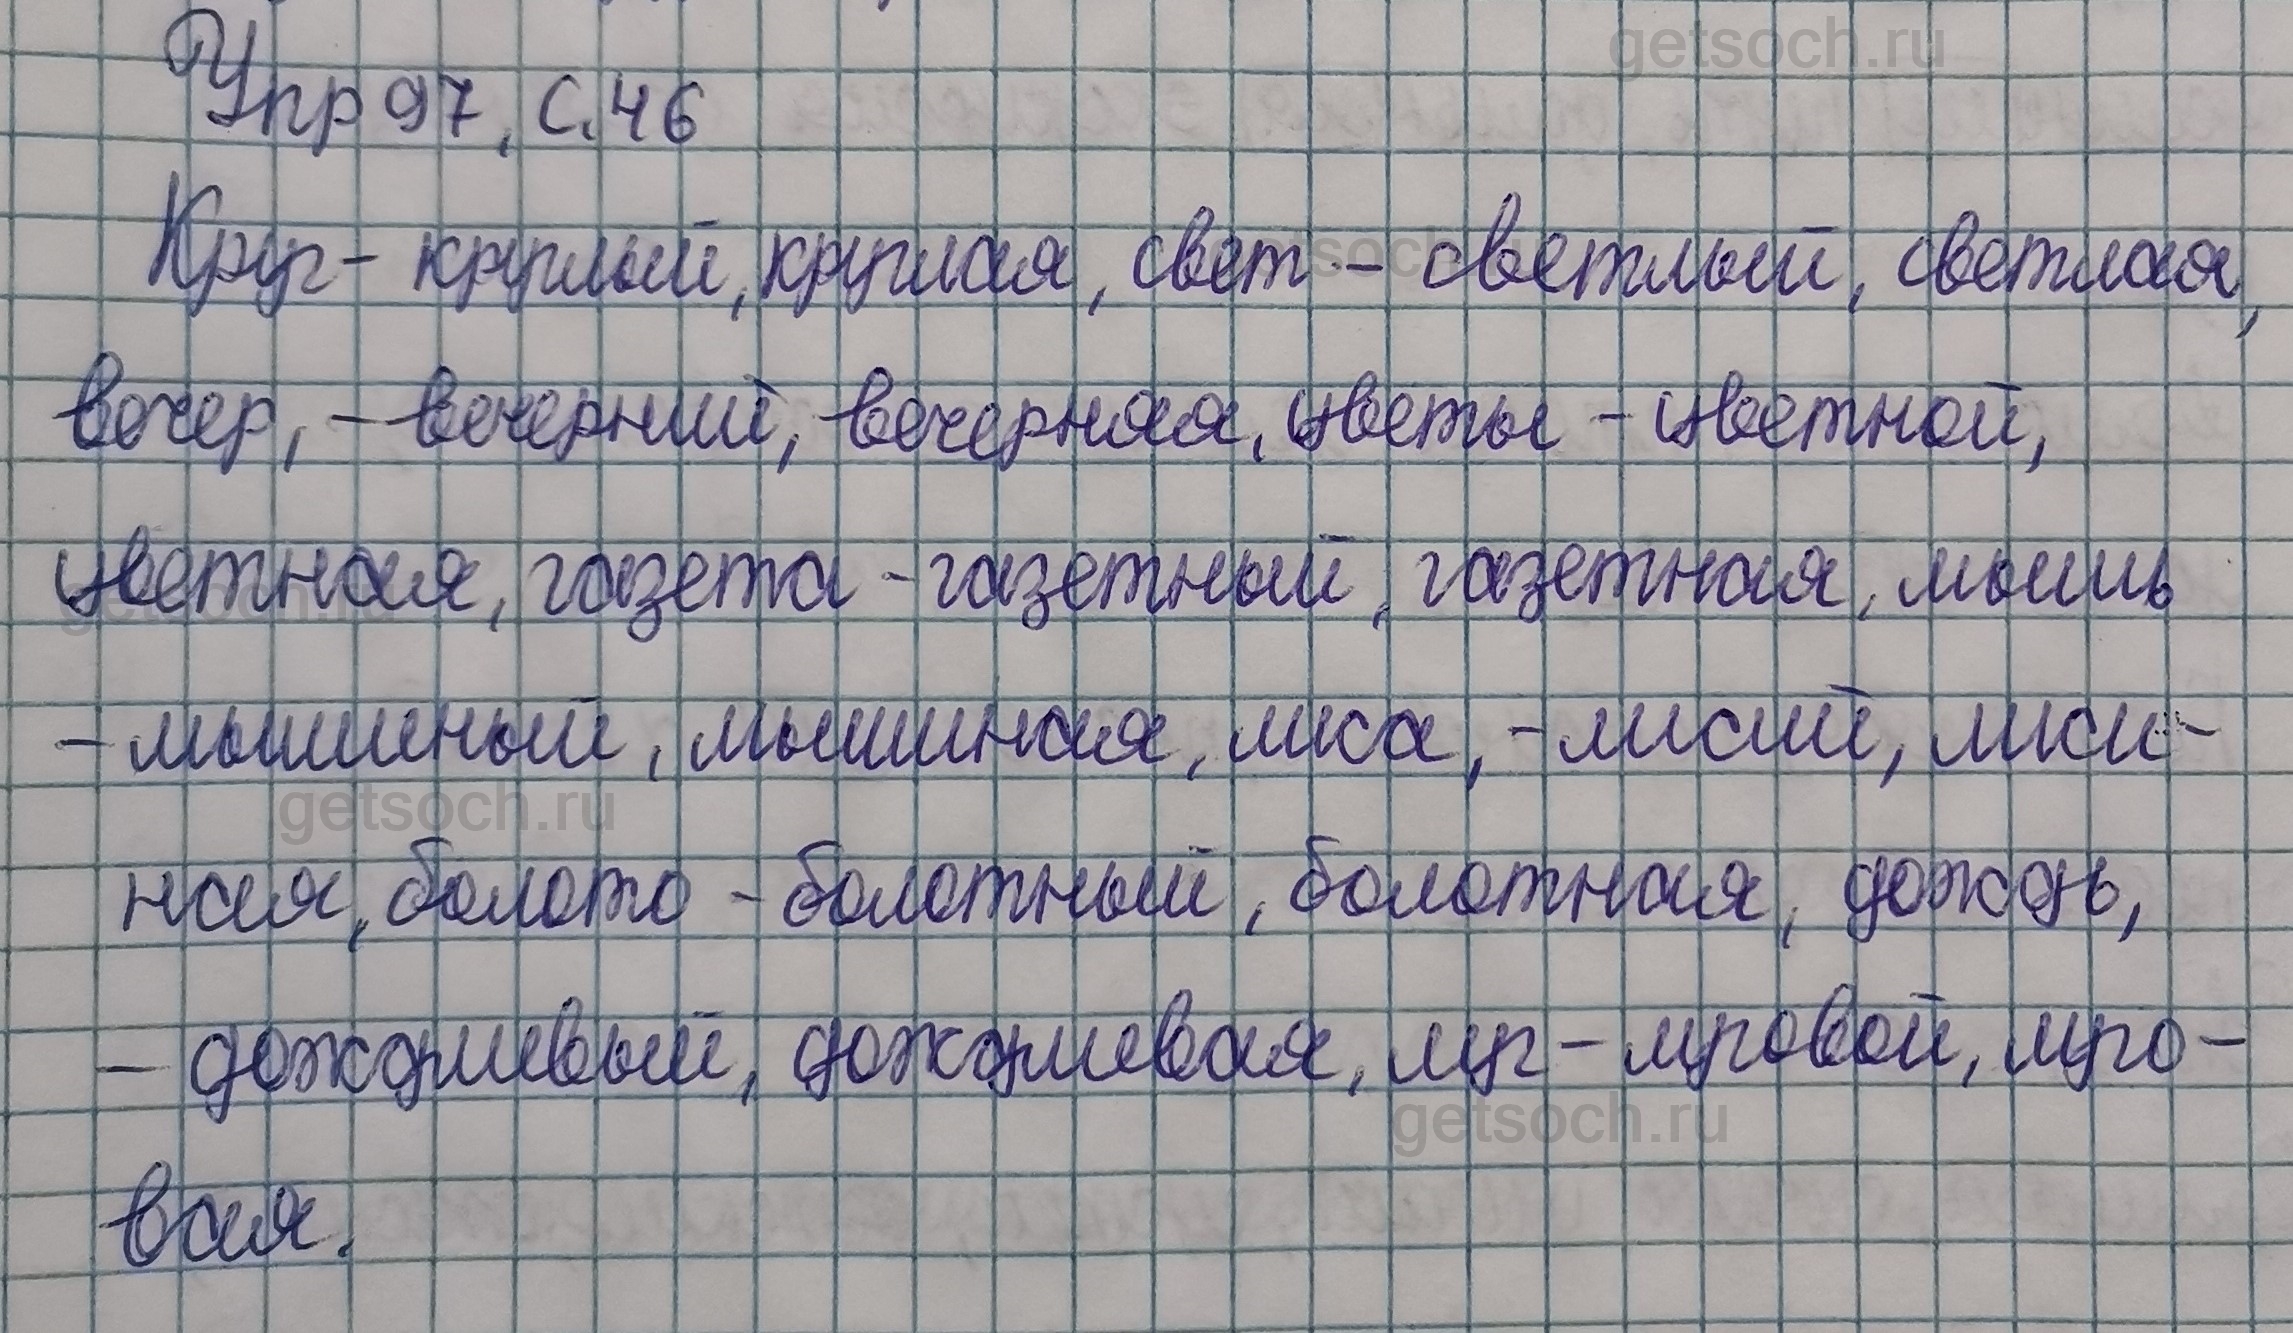 getsoch.ru
Упр 97, с. 46
Круг - круглый, круглая, свет - светлый, светлая,
getsoch.ru
вечер, - вечерний, вечерняя, цветы - цветной,
цветная, газета - газетный, газетная, мышь
getsoch.ru
- мышиный, мышиная, лиса, - лисий, лиси-
getsoch.ru
ная, болото - болотный, болотная, дождь,
- дождливый, дождливая, луг - луговой, луго-
getsoch.ru
вая.